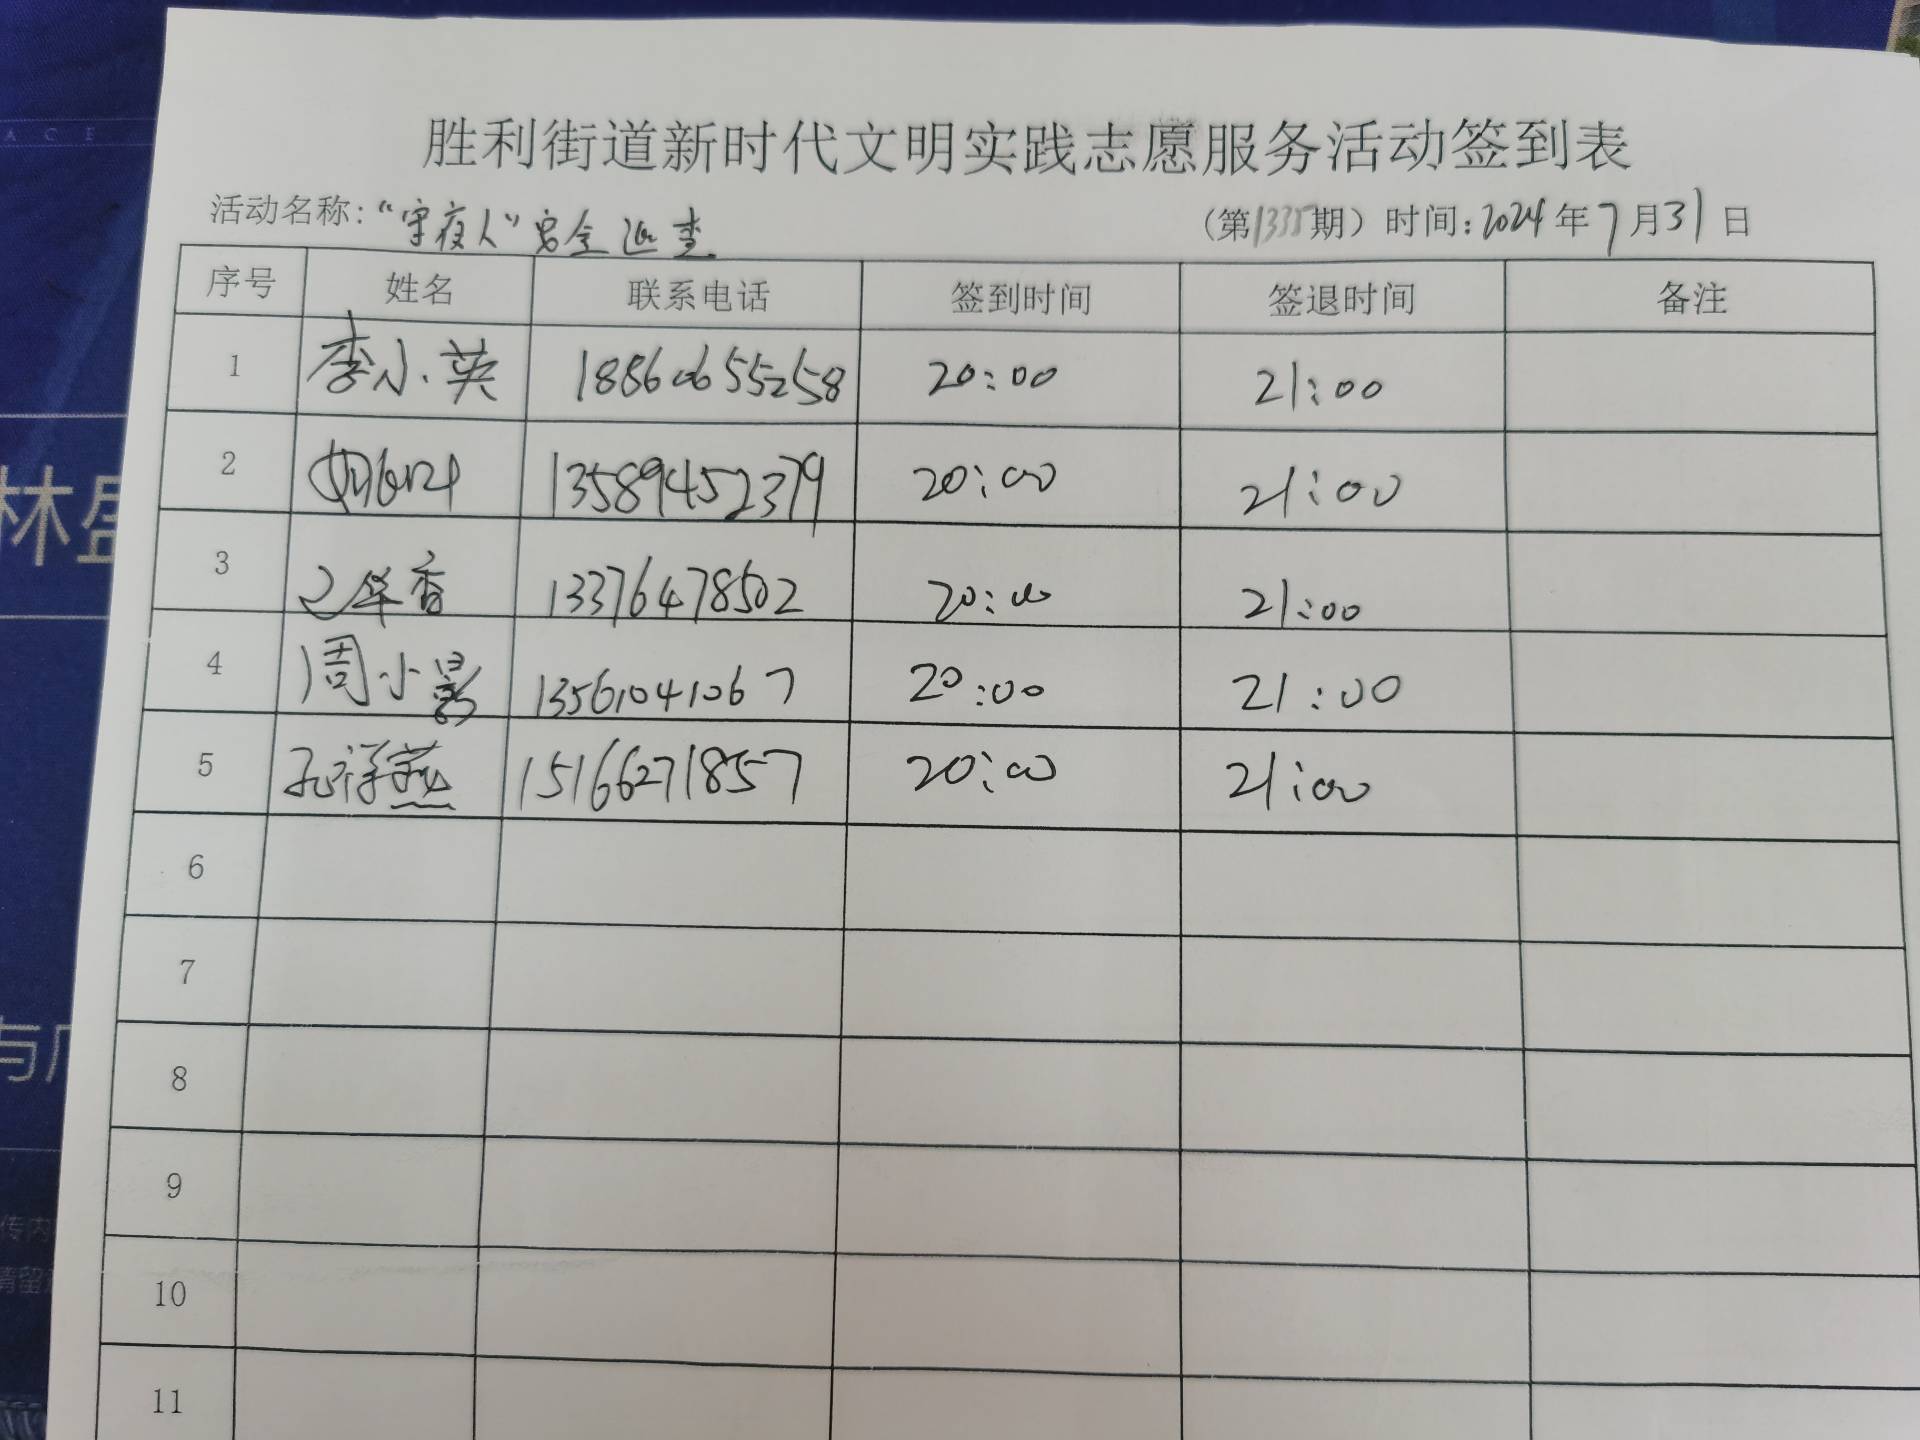 胜利街道新时代文明实践志愿服务活动签到表
活动名称:“守夜人”安全巡查 (第1335期) 时间:2024年7月31日
序号 姓名 联系电话 签到时间 签退时间 备注
1 李小英 18860655258 20:00 21:00
2 13589452379 20:00 21:00
3 华香 13376478502 20:00 21:00
4 周小影 13561041067 20:00 21:00
5 孔祥燕 15166271857 20:00 21:00
6
7
8
9
10
11
ACE
林盛
与
传内
请留